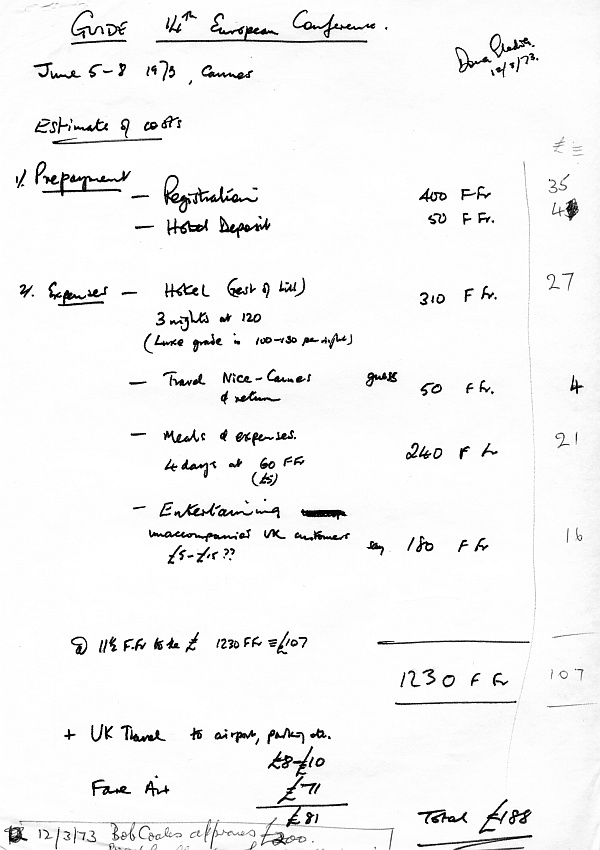 GUIDE 14th European Conference.
June 5-8 1973, Cannes
12/3/73.
Estimate of costs
£ ≡
1/. Prepayment — Registration 400 F Fr 35
— Hotel Deposit 50 F Fr. 4
2/. Expenses — Hotel (rest of bill) 310 F Fr. 27
3 nights at 120
(Luxe grade is 100-130 per night)
— Travel Nice-Cannes guess 50 F Fr. 4
& return
— Meals & expenses. 240 F Fr 21
4 days at 60 FFr
(£5)
— Entertaining
unaccompanied UK customers say 180 F Fr 16
£5-£15??
@ 11½ F.Fr to the £ 1230 FFr ≡ £107
1230 F Fr 107
+ UK Travel to airport, parking etc.
£8-£10
Fare Air £71
£81 Total £188
12/3/73 Bob Coales approves £200.